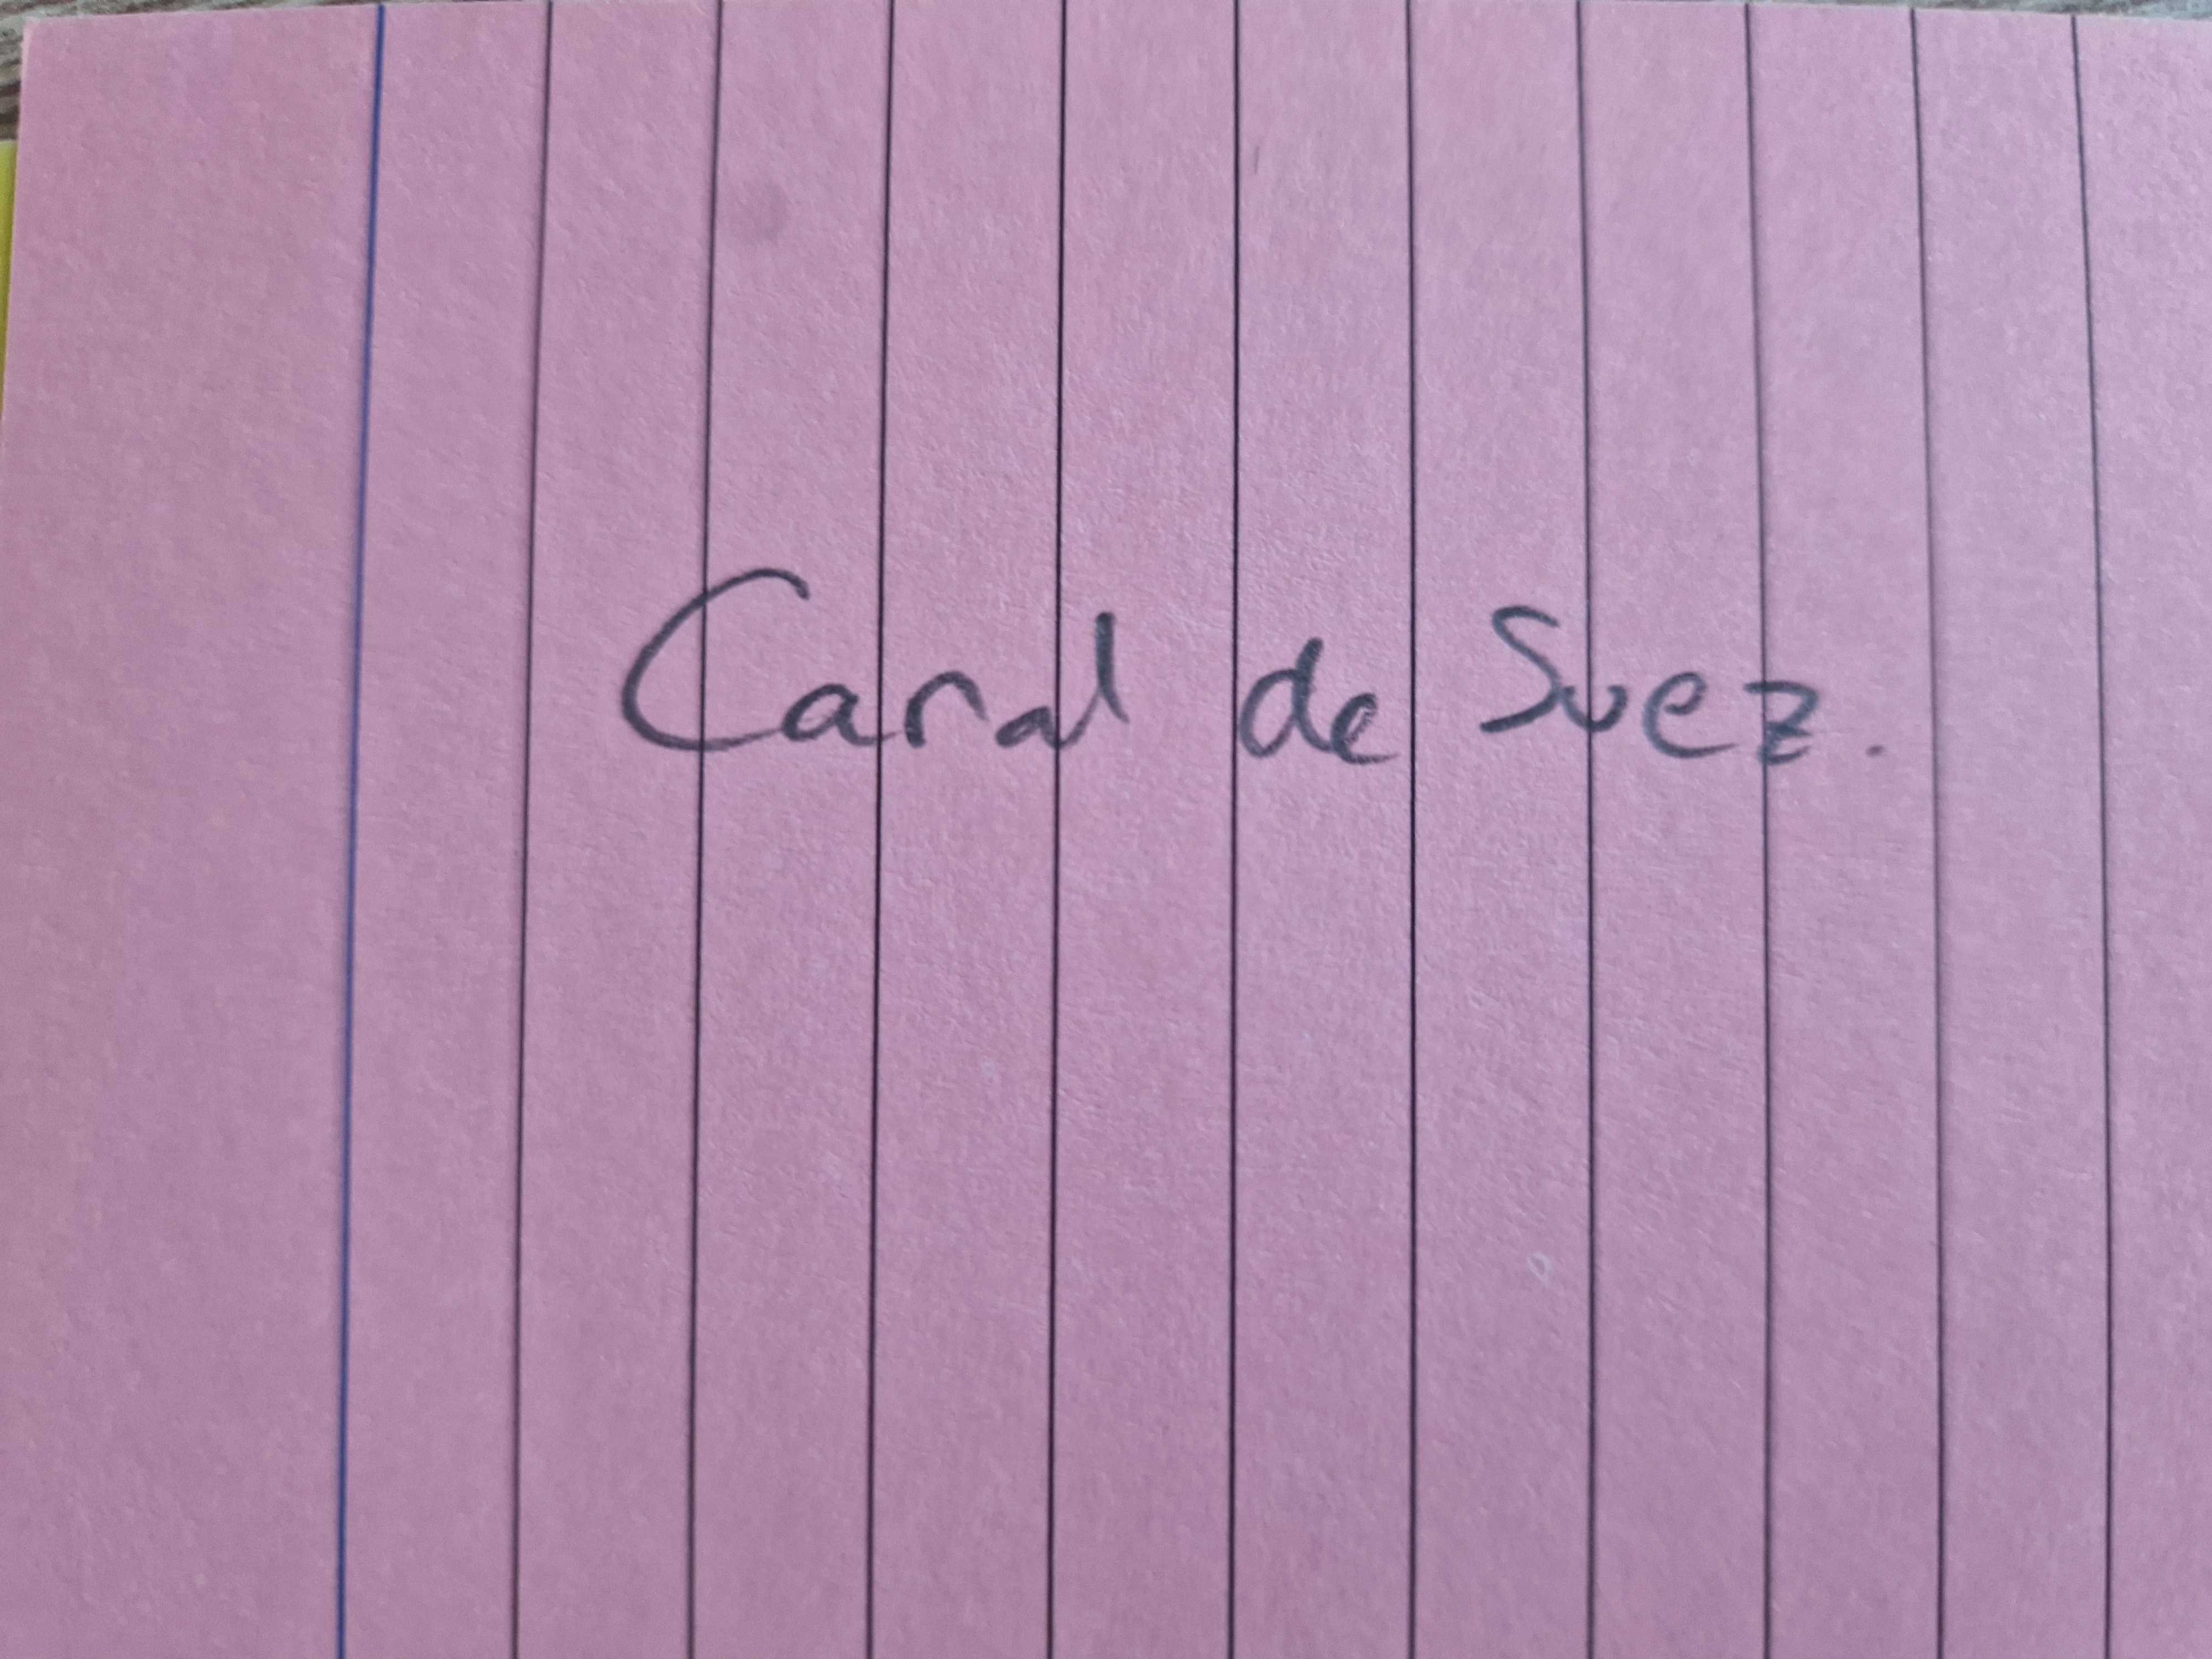 Canal de Suez.